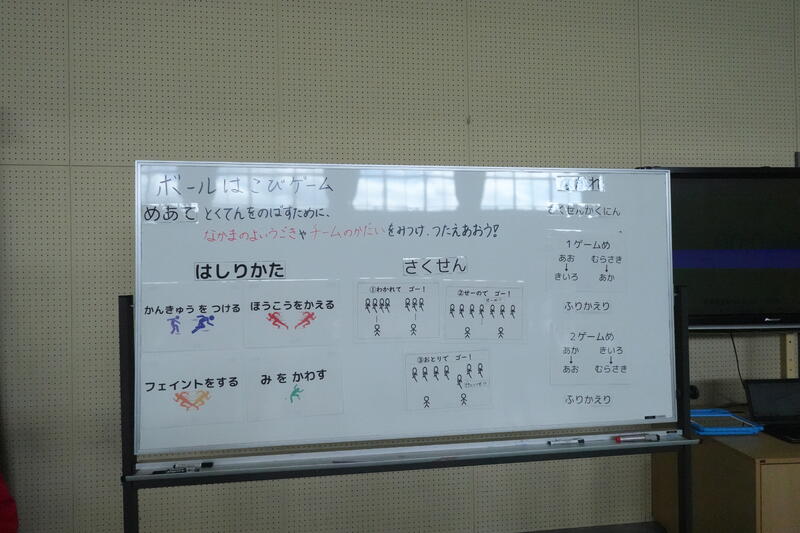 ボールはこびゲーム
めあて とくてんをのばすために、
なかまのよいうごきやチームのかだいをみつけ、つたえあおう!
はしりかた
かんきゅう を つける
ほうこうをかえる
フェイントをする
み を かわす
さくせん
①わかれて ゴー!
②せーので ゴー!
③おとりで ゴー!
ながれ
さくせんかくにん
1ゲームめ
あお むらさき
↓ ↓
きいろ あか
ふりかえり
2ゲームめ
あか きいろ
↓ ↓
あお むらさき
ふりかえり